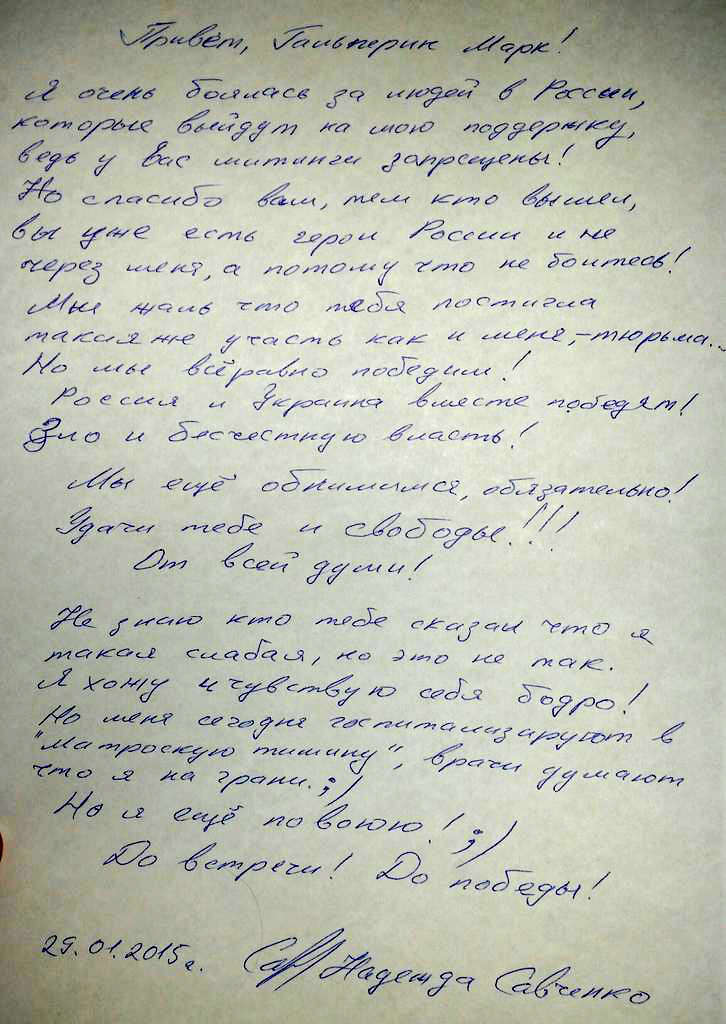 Привет, Гальперин Марк!
Я очень боялась за людей в России,
которые выйдут на мою поддержку,
ведь у Вас митинги запрещены!
Но спасибо вам, тем кто вышел,
вы уже есть герои России и не
через меня, а потому что не боитесь!
Мне жаль что тебя постигла
такая же участь как и меня,-тюрьма...
Но мы всёравно победим!
Россия и Украина вместе победят!
Зло и бесчестную власть!
Мы ещё обнимимся, обязательно!
Удачи тебе и свободы!!!
От всей души!
Не знаю кто тебе сказал что я
такая слабая, но это не так.
Я хожу и чувствую себя бодро!
Но меня сегодня госпитализируют в
"Матроскую тишину", врачи думают
что я на грани. ;)
Но я ещё повоюю! ;)
До встречи! До победы!
29.01.2015г. Сав Надежда Савченко